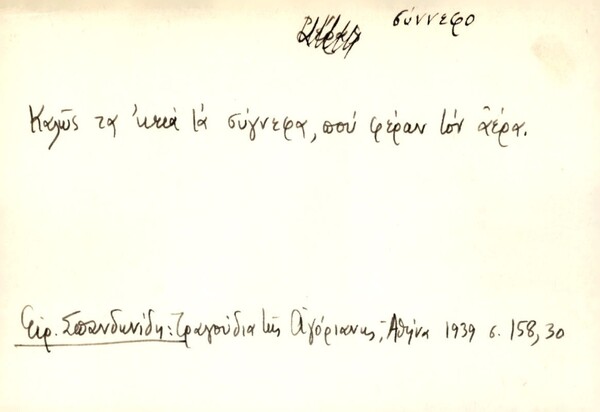 σύννεφο
Καλῶς τα 'κειά τά σύγνεφα, πού φέραν τόν ἀέρα.
Εἰρ. Σπανδωνίδη: Τραγούδια τῆς Ἀγόριανης, Ἀθήνα 1939 σ. 158, 30